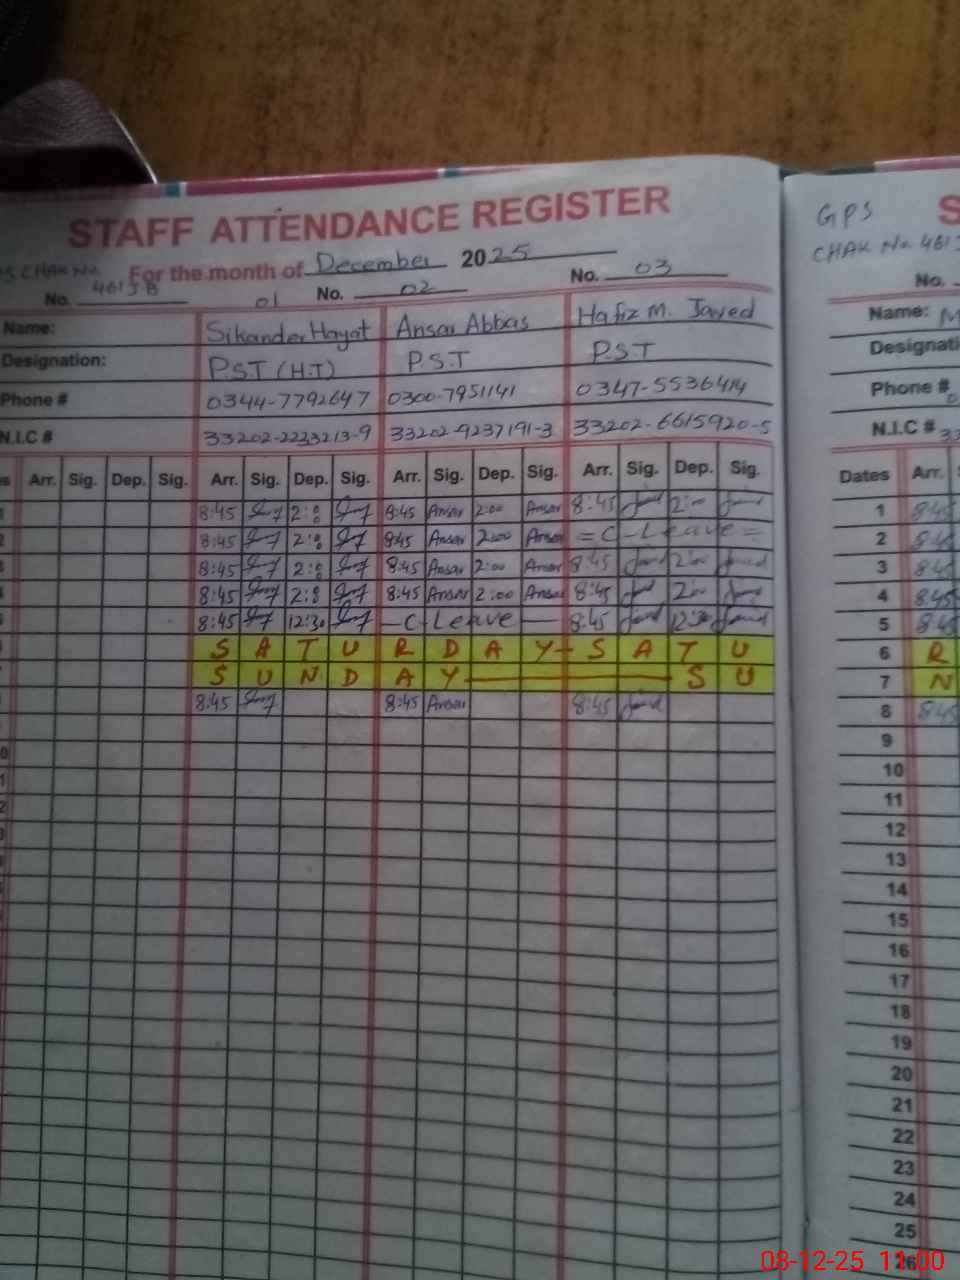 STAFF ATTENDANCE REGISTER
CHAK No. For the month of December 2025
No. 461 JB 01 No. 02 No. 03
Name: Sikander Hayat Ansar Abbas Hafiz M. Javed
Designation: P.S.T (H.T) P.S.T P.S.T
Phone # 0344-7792647 0300-7951141 0347-5536414
N.I.C # 33202-2223213-9 33202-9237191-3 33202-6615920-5
Arr. Sig. Dep. Sig. Arr. Sig. Dep. Sig. Arr. Sig. Dep. Sig. Arr. Sig. Dep. Sig.
8:45 2:00 8:45 Ansar 2:00 Ansar 8:45 2:00
8:45 2:00 8:45 Ansar 2:00 Ansar = C-Leave =
8:45 2:00 8:45 Ansar 2:00 Ansar 8:45 2:00
8:45 2:00 8:45 Ansar 2:00 Ansar 8:45 2:00
8:45 12:30 — C-Leave — 8:45 12:30
S A T U R D A Y - S A T U
S U N D A Y — S U
8:45 8:45 Ansar 8:45
GPS S
CHAK No. 461 J
No.
Name: M
Designati
Phone # 0
N.I.C # 33
Dates Arr.
1 8:45
2 8:45
3 8:45
4 8:45
5 8:45
6 R
7 N
8 8:45
9
10
11
12
13
14
15
16
17
18
19
20
21
22
23
24
25
26
08-12-25 11:00